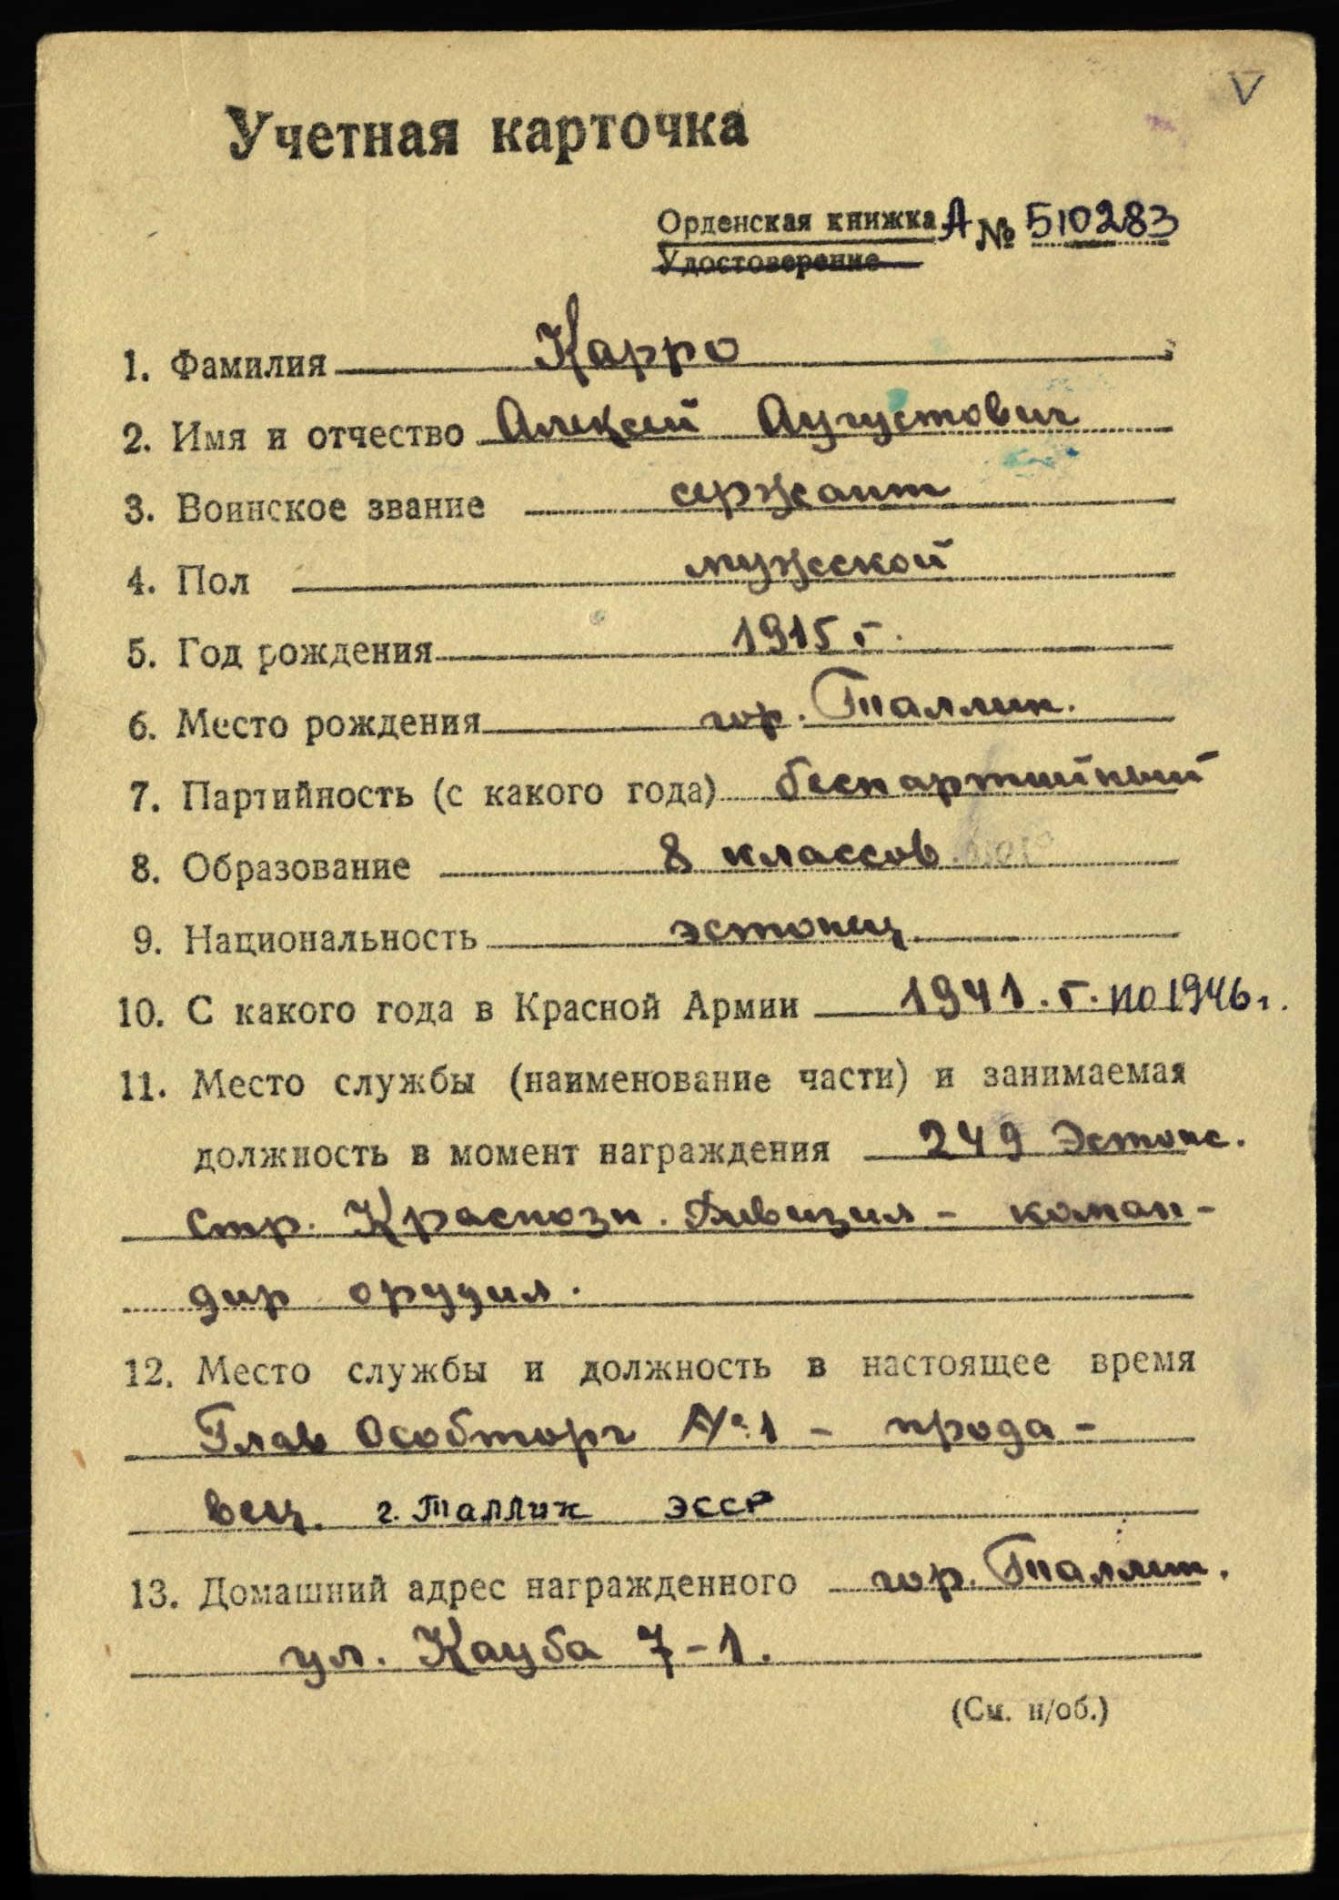 V
Учетная карточка
Орденская книжка А № 510283
Удостоверение
1. Фамилия Карро
2. Имя и отчество Алексей Аугустович
3. Воинское звание сержант
4. Пол мужской
5. Год рождения 1915 г.
6. Место рождения гор. Таллин.
7. Партийность (с какого года) беспартийный
8. Образование 8 классов
9. Национальность эстонец
10. С какого года в Красной Армии 1941. г. по 1946 г.
11. Место службы (наименование части) и занимаемая
должность в момент награждения 249 Эстонс.
Стр. Краснозн. Дивизия - коман-
дир орудия.
12. Место службы и должность в настоящее время
Глав Особторг № 1 - прода-
вец. г. Таллин ЭССР
13. Домашний адрес награжденного гор. Таллин.
ул. Кауба 7-1.
(См. н/об.)